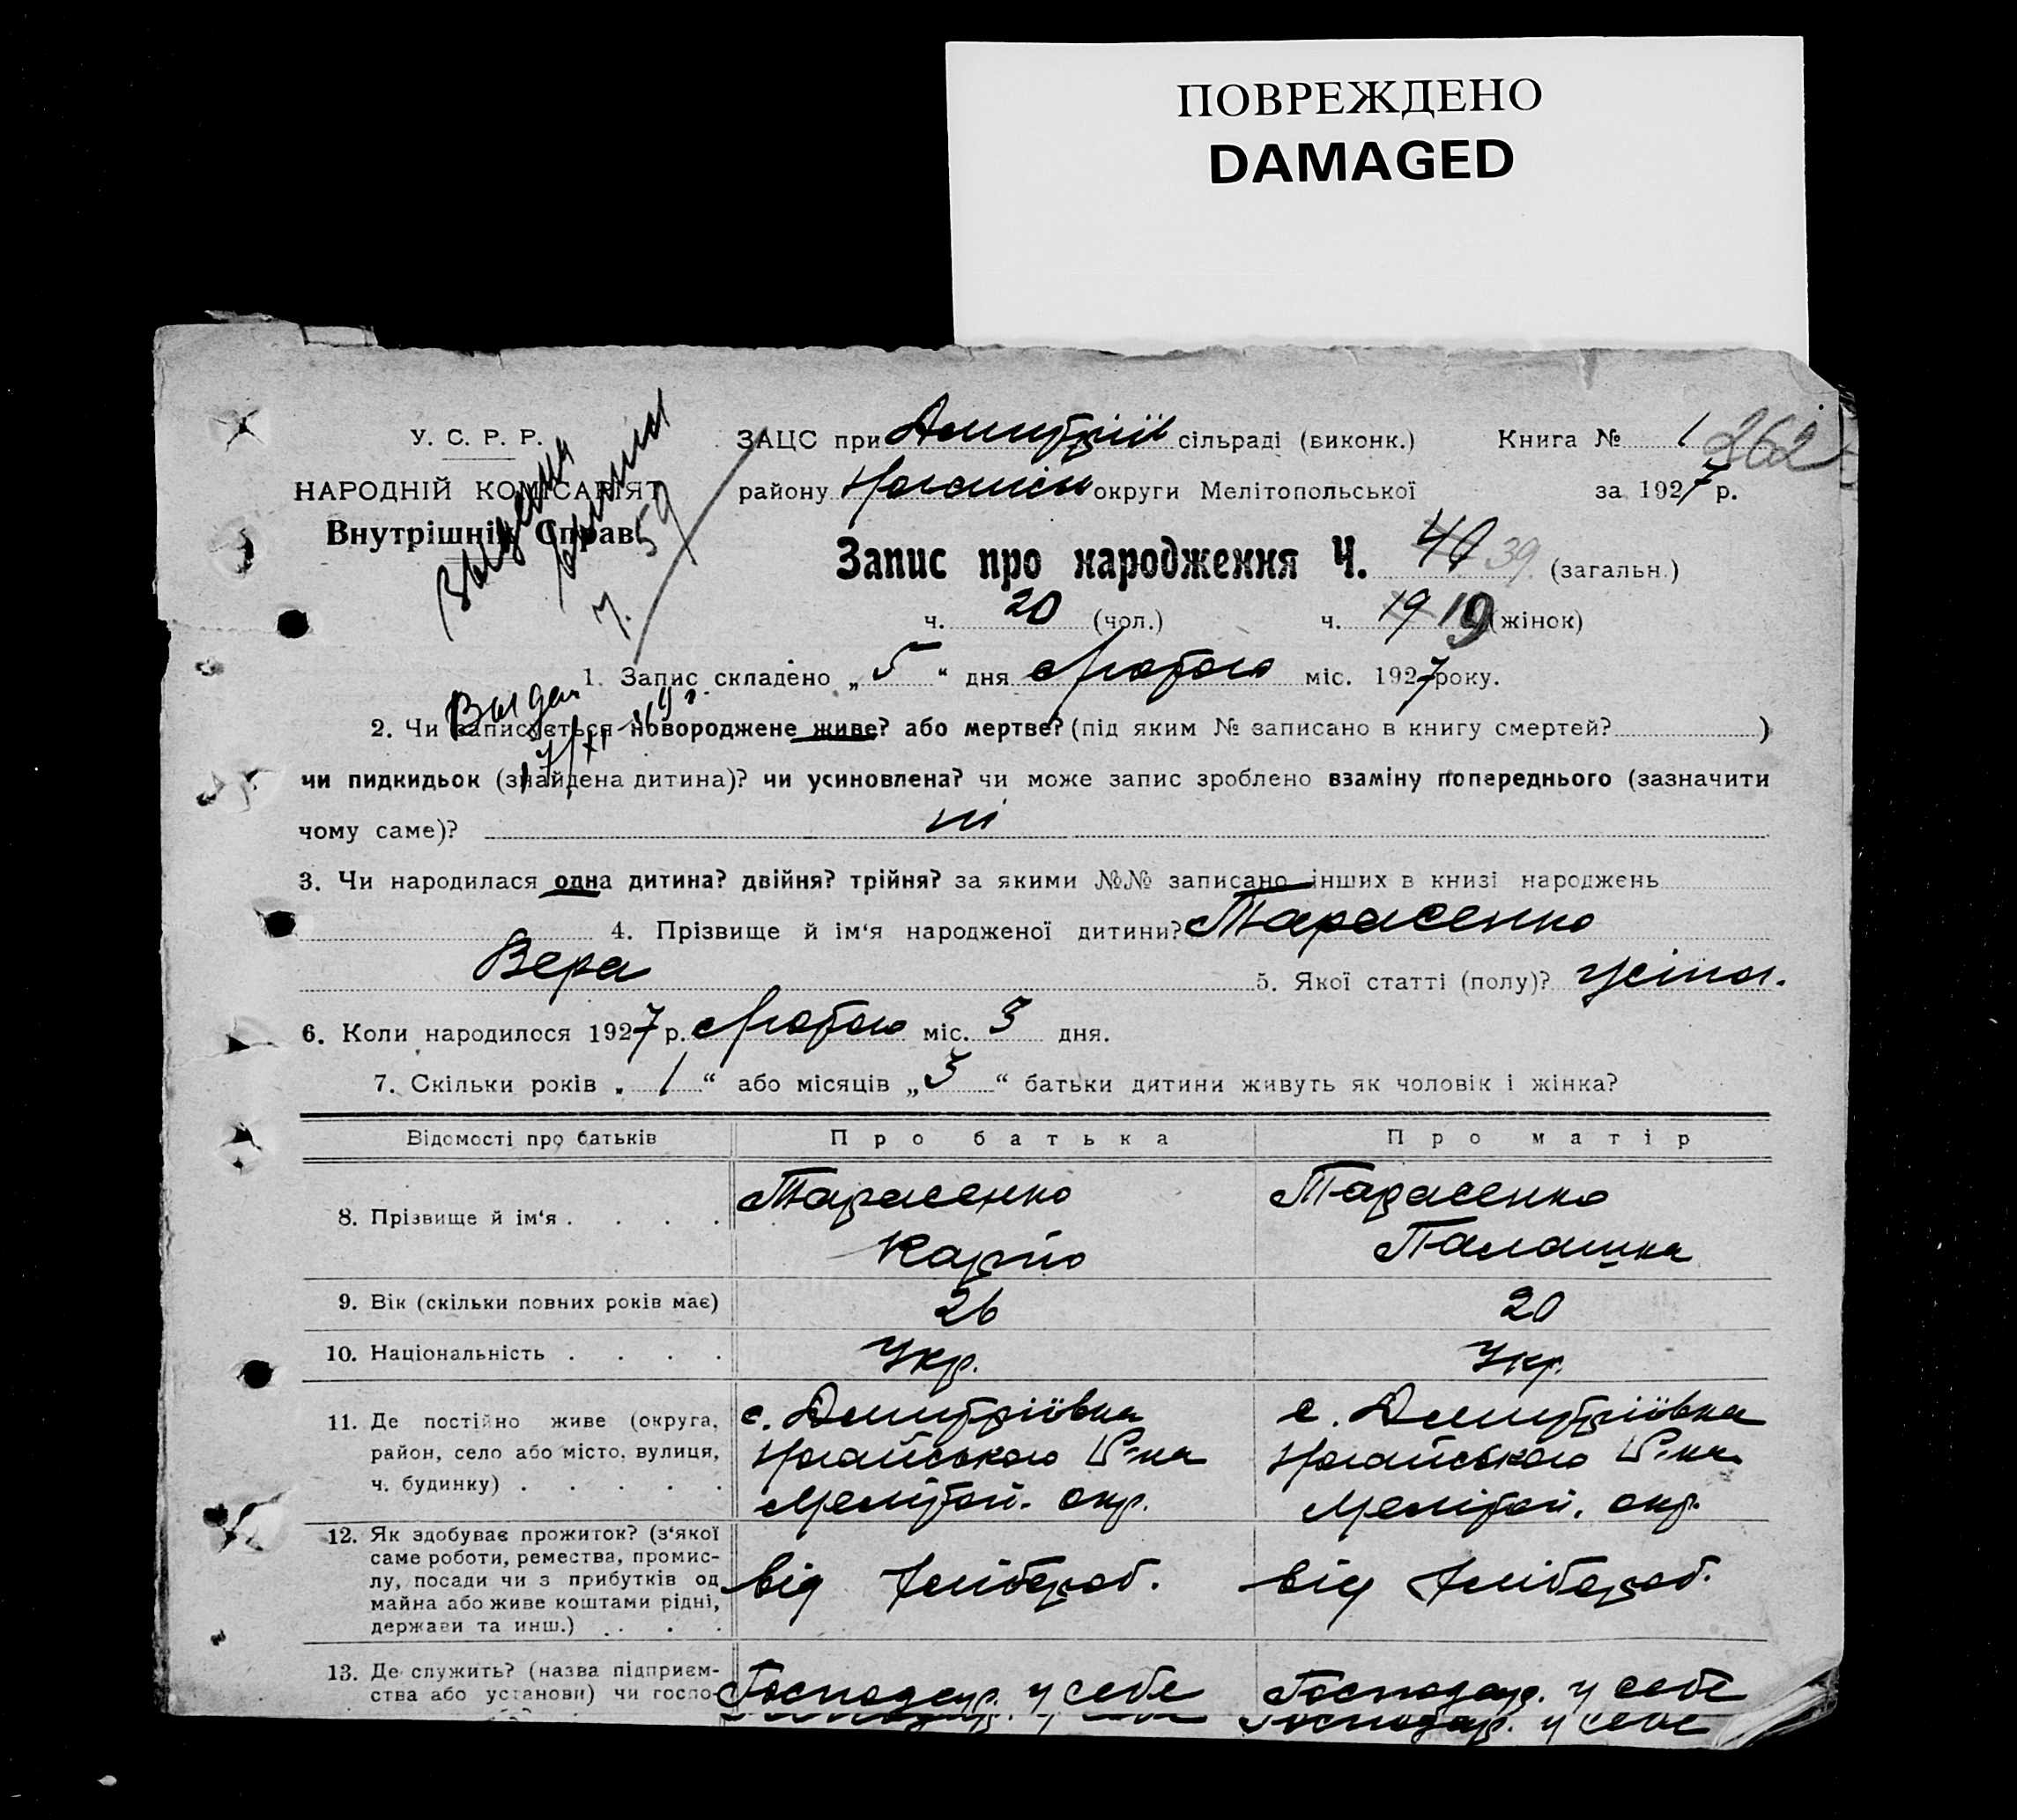 ПОВРЕЖДЕНО
DAMAGED
У. С. Р. Р.
НАРОДНІЙ КОМІСАРІЯТ
Внутрішніх Справ
ЗАЦС при Дмитрій сільраді (виконк.) Книга № 1 262
району Ногайськ округи Мелітопольської за 1927 р.
Запис про народження Ч. 40 39 (загальн.)
ч. 20 (чол.) ч. 19 19 (жінок)
1. Запис складено „ 5 “ дня Лютого міс. 1927 року.
2. Чи записується новороджене живе? або мертве? (під яким № записано в книгу смертей? )
чи пидкидьок (знайдена дитина)? чи усиновлена? чи може запис зроблено взаміну попереднього (зазначити
чому саме)? ні
3. Чи народилася одна дитина? двійня? трійня? за якими №№ записано інших в книзі народжень
4. Прізвище й ім‘я народженої дитини? Тарасенко
Вера 5. Якої статті (полу)?
6. Коли народилося 1927 р. Лютого міс. 3 дня.
7. Скільки років „ 1 “ або місяців „ 3 “ батьки дитини живуть як чоловік і жінка?
Відомості про батьків Про батька Про матір
8. Прізвище й ім‘я . . . . Тарасенко Карпо Тарасенко Палашка
9. Вік (скільки повних років має) 26 20
10. Національність . . . . Укр. Укр.
11. Де постійно живе (округа, с. Дмитріївка с. Дмитріївка
район, село або місто, вулиця, Ногайського Р-на Ногайського Р-на
ч. будинку) . . . . . Мелітоп. окр. Мелітоп. окр.
12. Як здобуває прожиток? (з‘якої
саме роботи, ремества, промис-
лу, посади чи з прибутків од від хліброб. від хліброб.
майна або живе коштами рідні,
держави та инш.) . . . .
13. Де служить? (назва підприєм-
ства або установи) чи госпо- Господар. у себе Господар. у себе
Господар. у себе